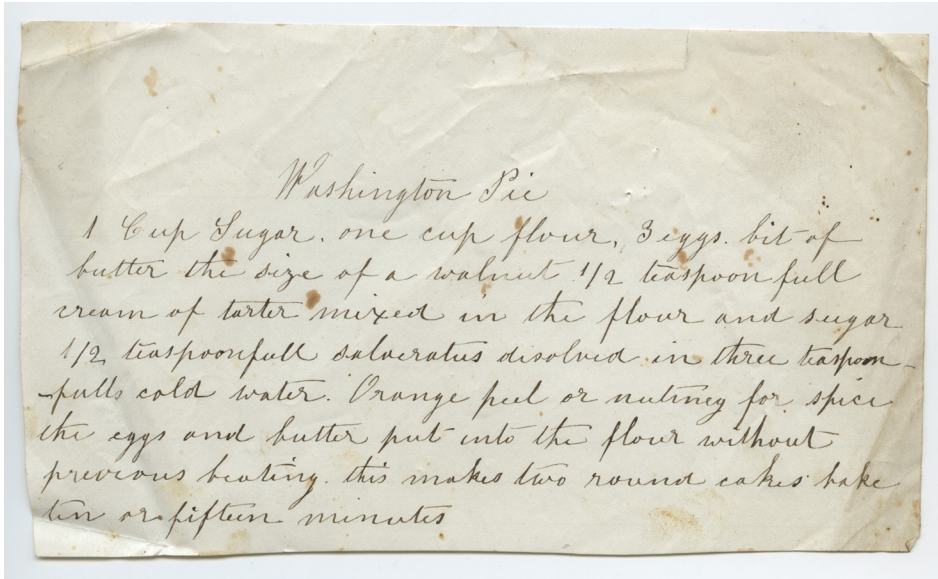 Washington Pie
1 Cup Sugar. one cup flour, 3 eggs. bit of
butter the size of a walnut 1/2 teaspoon full
cream of tarter mixed in the flour and sugar
1/2 teaspoonfull salveratus disolved in three teaspoon-
-fulls cold water. Orange peel or nutmeg for spice
the eggs and butter put into the flour without
previous beating. this makes two round cakes bake
ten or fifteen minutes